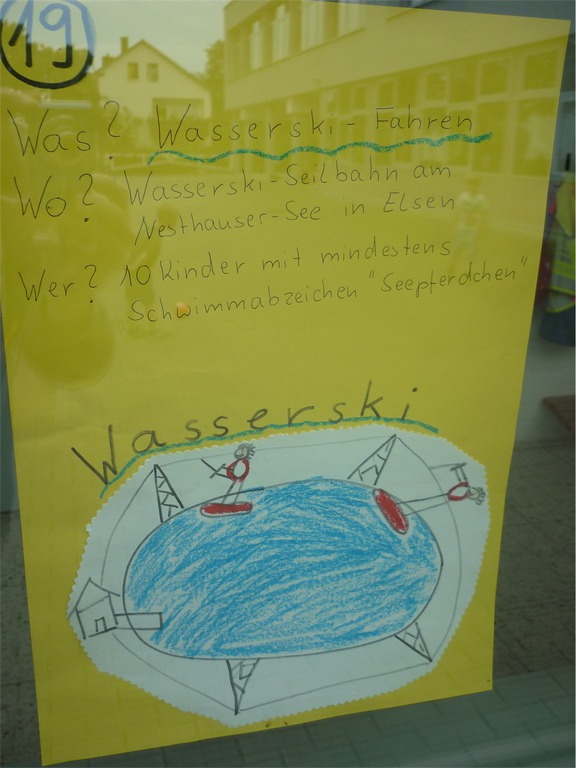 19
Was? Wasserski-Fahren
Wo? Wasserski-Seilbahn am
Nesthauser-See in Elsen
Wer? 10 Kinder mit mindestens
Schwimmabzeichen "Seepferdchen"
Wasserski